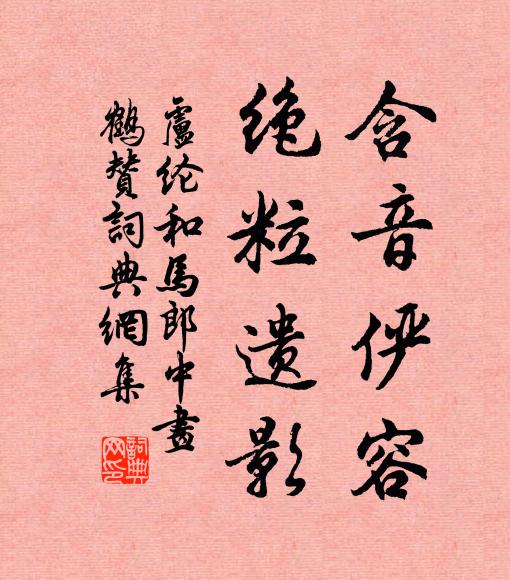 含音俨容
绝粒遗影
盧纶和馬郎中畫
鶴贊詞典網集
詞典
网印